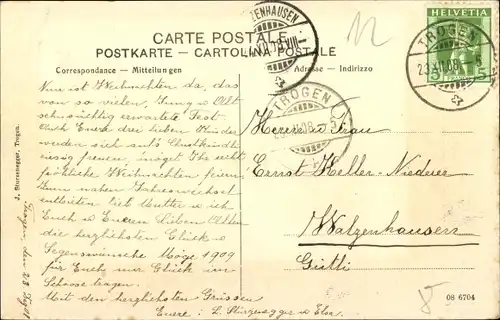 CARTE POSTALE
POSTKARTE - CARTOLINA POSTALE
Correspondance - Mitteilungen
Adresse - Indirizzo
HELVETIA
TROGEN
23.XII.08
TROGEN
ZENHAUSEN
Nun ist Weihnachten da, das
von so vielen, Jung u Alt
sehnsüchtig erwartete Fest.
Auch Euere drei lieben Kinder
werden sich aufs Christkindli
riesig freuen, möget Ihr recht
fröhliche Weihnachten feiern.
Zum nahen Jahreswechsel
entbieten lieb Mutter u ich
Euch u Eueren Lieben Allen
die herzlichsten Glück u
Segenswünsche. Möge 1909
für Euch nur Glück im
Schosse tragen.
Mit den herzlichsten Grüssen
Euere: L. Sturzenegger u Elsa.
Herrn u Frau
Ernst Keller-Niederer
Walzenhausen
Gütli
J. Sturzenegger, Trogen.
Trogen, den 23.
08 6704